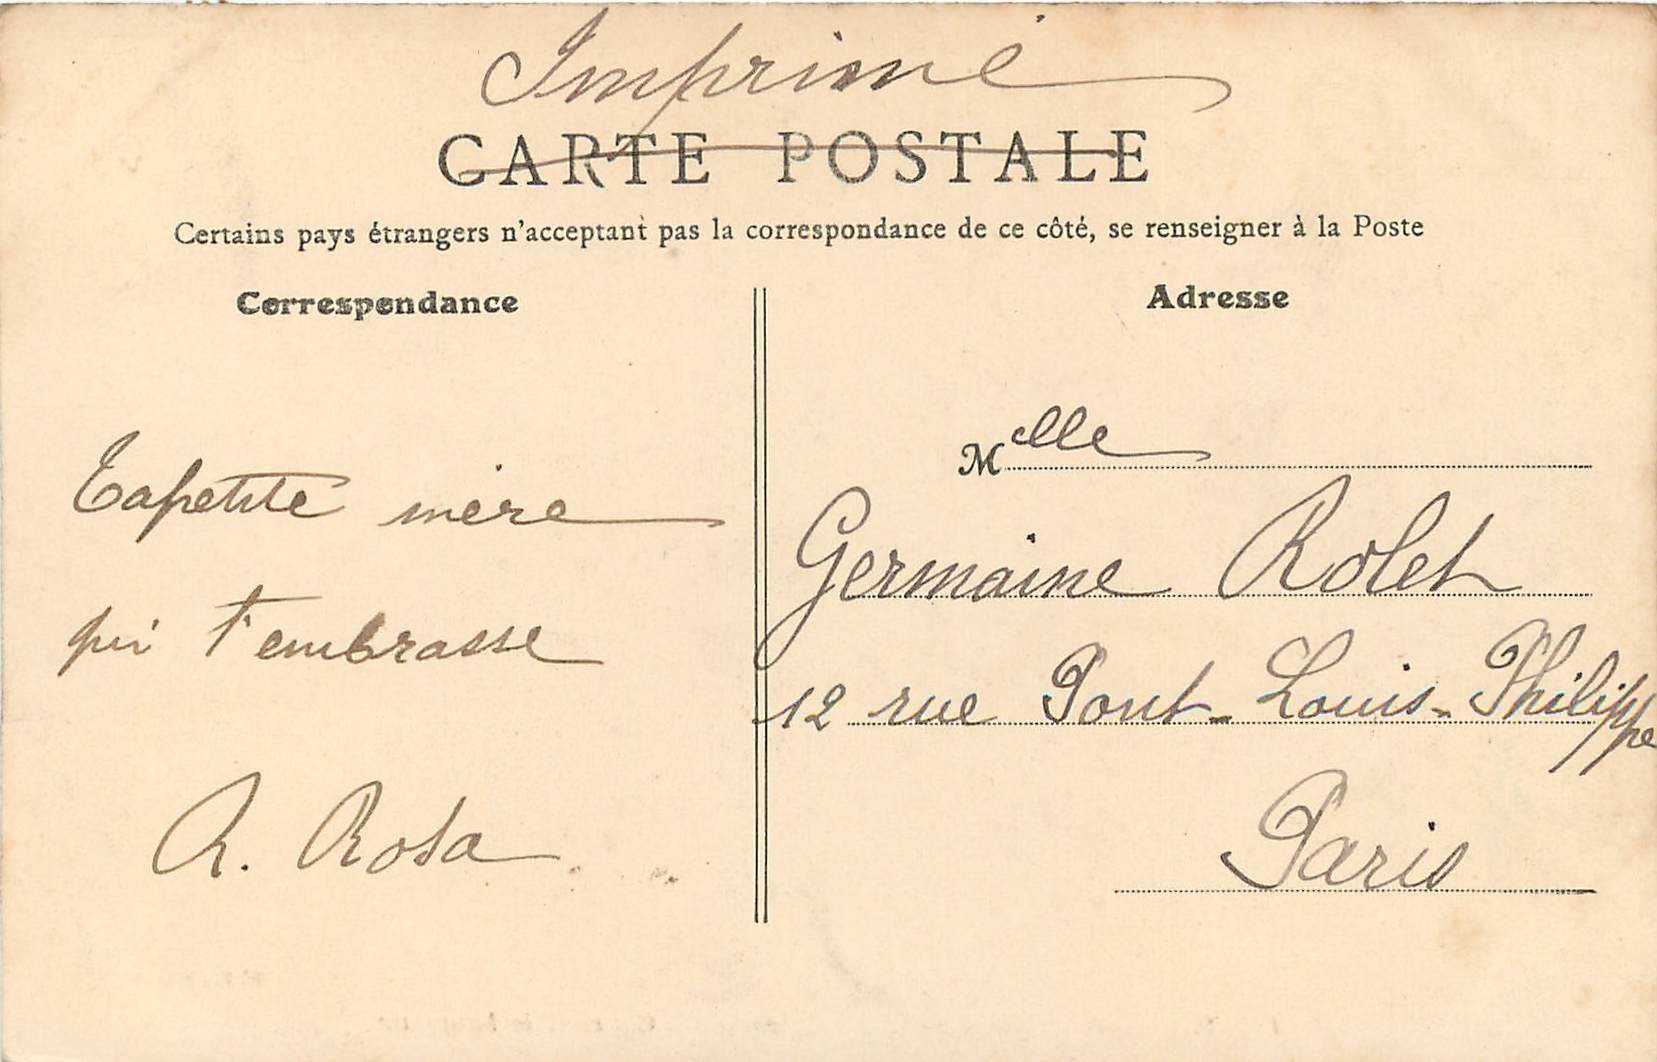 Imprimé
CARTE POSTALE
Certains pays étrangers n'acceptant pas la correspondance de ce côté, se renseigner à la Poste
Correspondance
Ta petite mère
qui t'embrasse
R. Rosa
Adresse
Melle
Germaine Rolet
12 rue Pont-Louis-Philippe
Paris